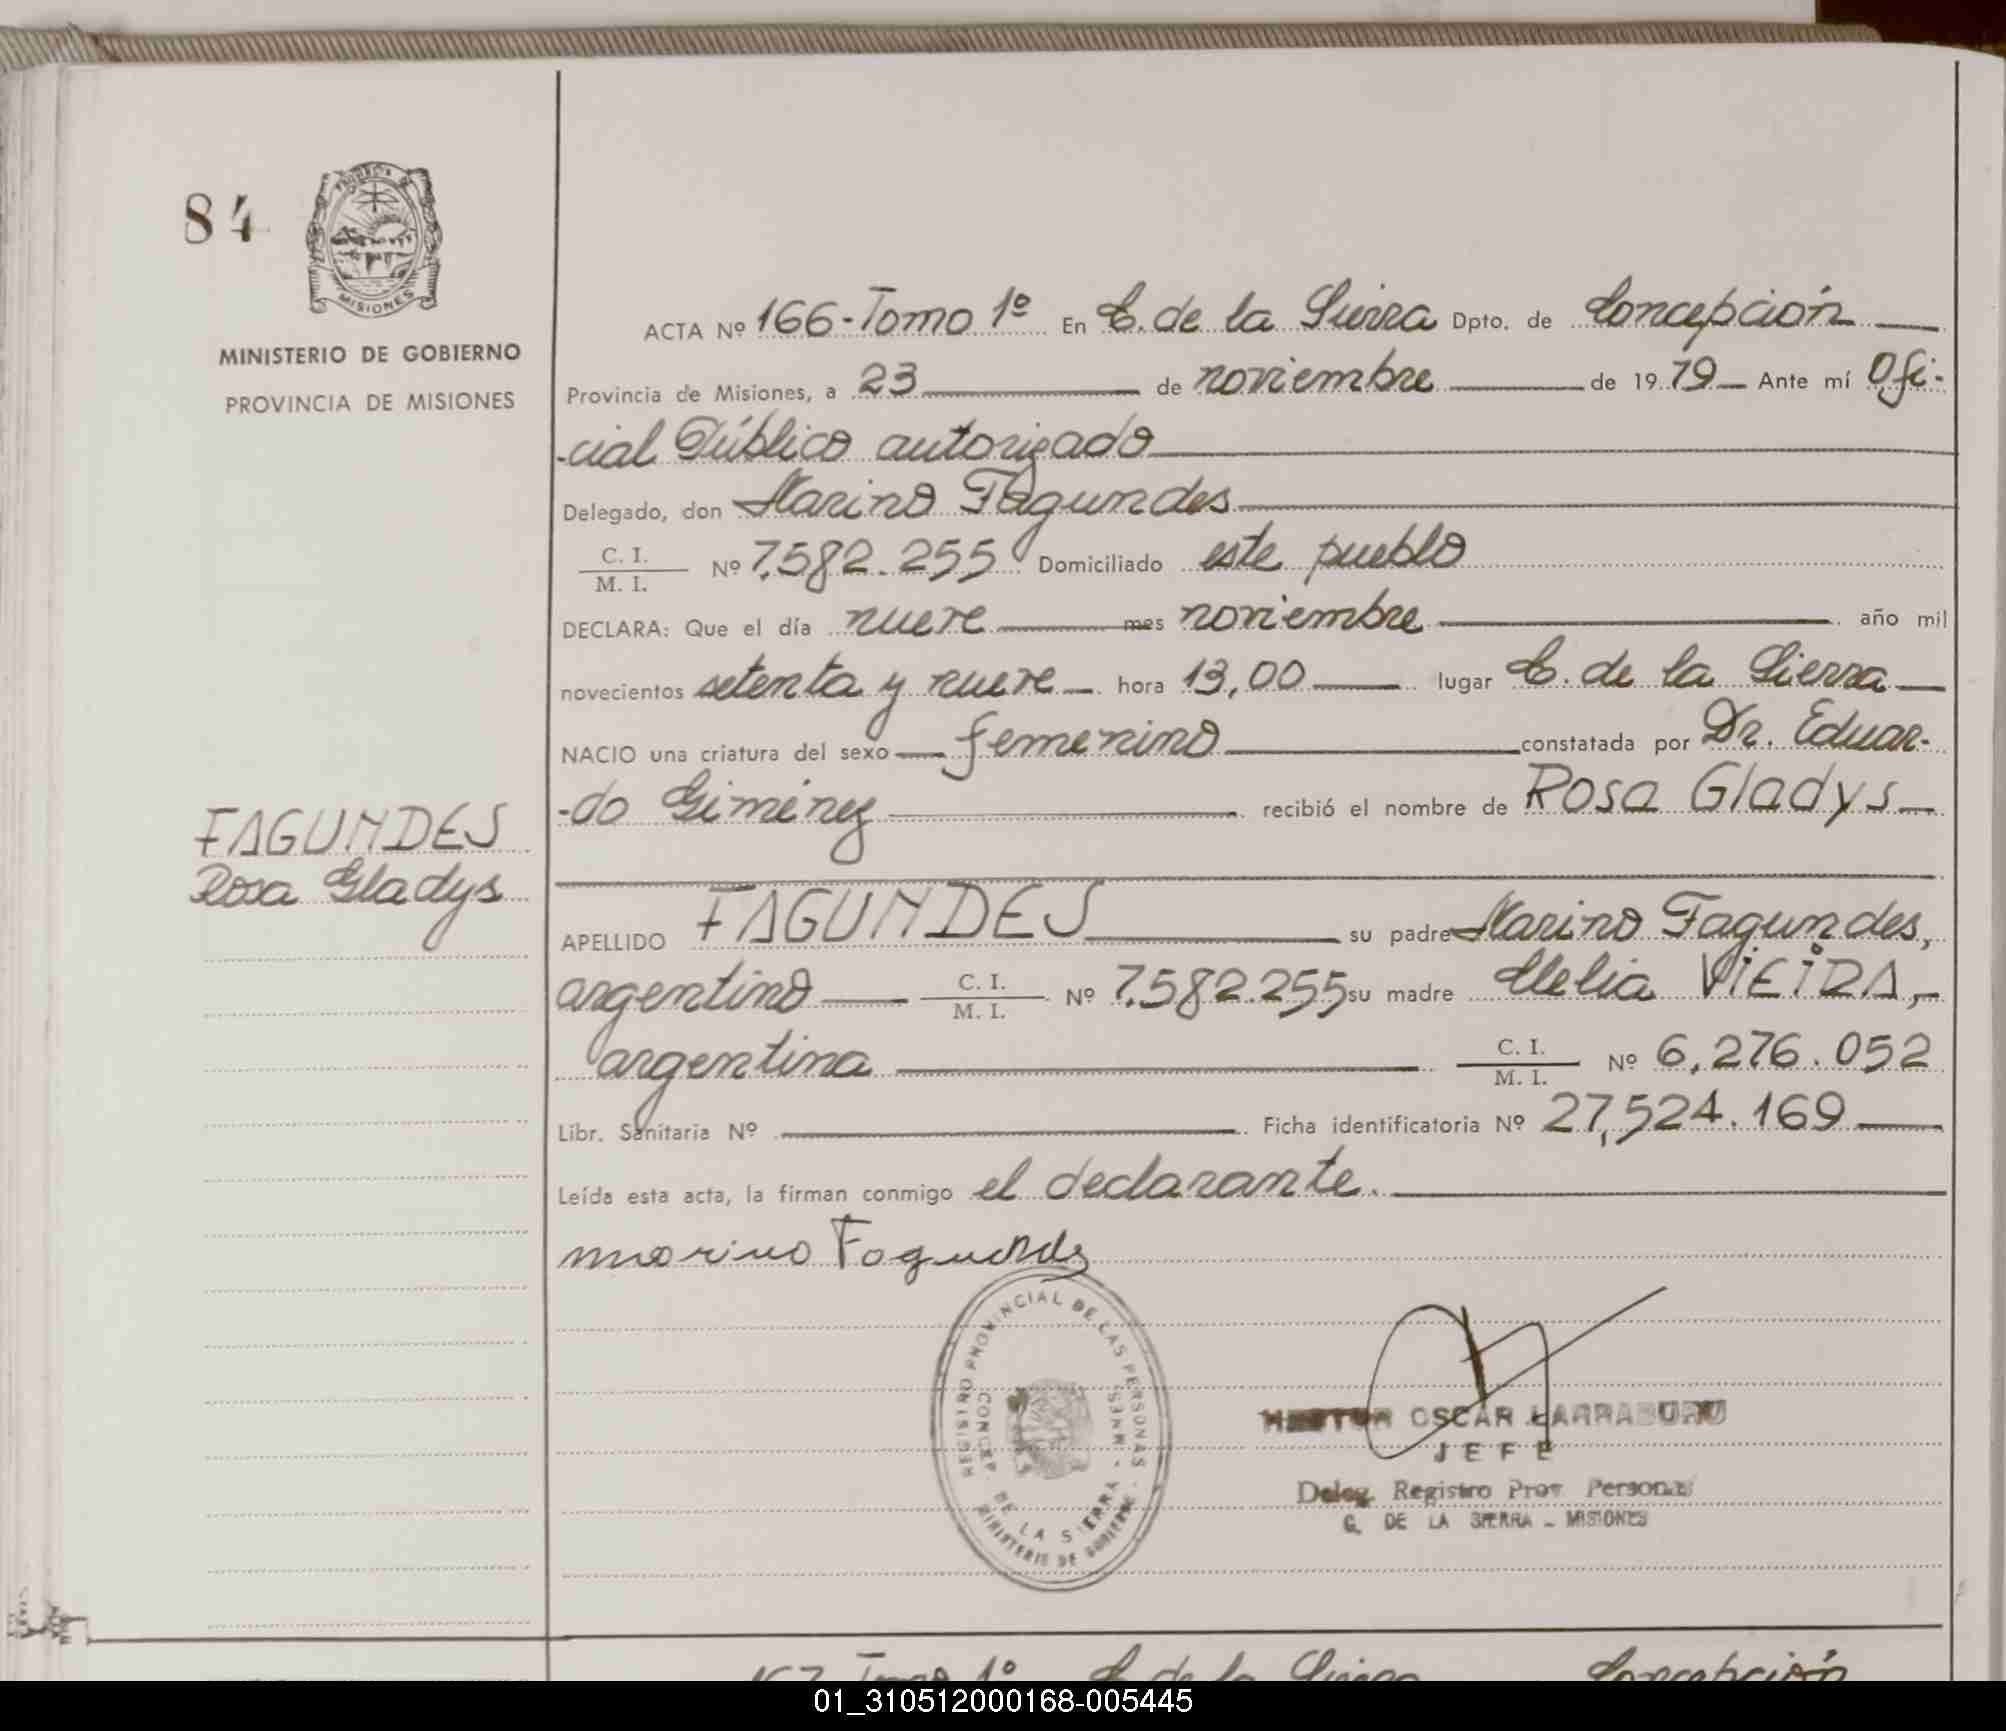 84
PROVINCIA DE
MISIONES
MINISTERIO DE GOBIERNO
PROVINCIA DE MISIONES
FAGUNDES
Rosa Gladys
ACTA Nº 166-Tomo 1º En C. de la Sierra Dpto. de Concepción
Provincia de Misiones, a 23 de noviembre de 1979 Ante mí Ofi-
-cial Público autorizado
Delegado, don Marino Fagundes
C. I.
M. I. Nº 7.582.255 Domiciliado este pueblo
DECLARA: Que el día nueve mes noviembre año mil
novecientos setenta y nueve hora 13,00 lugar C. de la Sierra
NACIO una criatura del sexo femenino constatada por Dr. Eduar-
-do Giménez recibió el nombre de Rosa Gladys
APELLIDO FAGUNDES su padre Marino Fagundes,
argentino C. I. M. I. Nº 7.582.255 su madre Clelia VIEIRA,
argentina C. I. M. I. Nº 6,276.052
Libr. Sanitaria Nº Ficha identificatoria Nº 27,524.169
Leída esta acta, la firman conmigo el declarante.
marino Fagundes
REGISTRO PROVINCIAL DE LAS PERSONAS
CONCEP. DE LA SIERRA - MNES.
MINISTERIO DE GOBIERNO
HECTOR OSCAR LARRABURU
JEFE
Deleg. Registro Prov. Personas
C. DE LA SIERRA - MISIONES
167 Tomo 1º C. de la Sierra Concepción
01_310512000168-005445